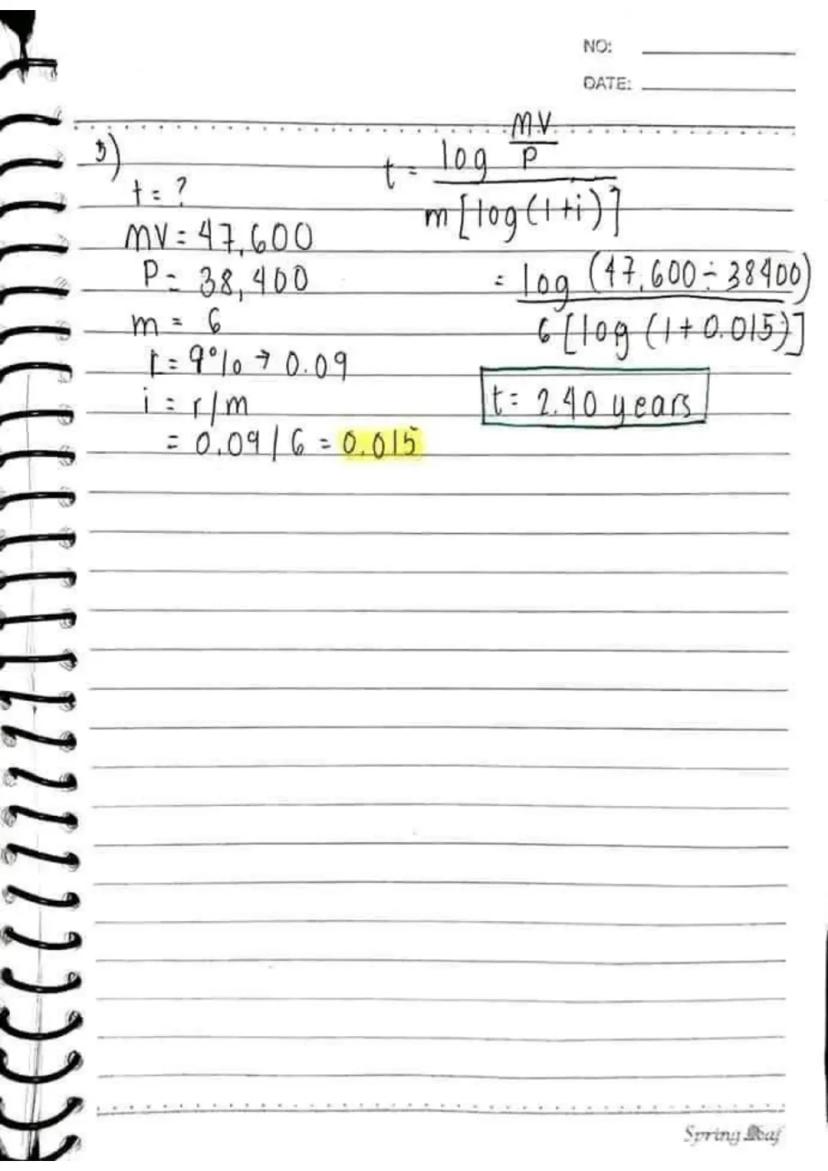 NO:
DATE:
5)
t = ?
MV = 47,600
P = 38,400
m = 6
r = 9% → 0.09
i = r/m
= 0.09 / 6 = 0.015
t = log MV/P
m [log (1+i)]
= log (47,600 ÷ 38400)
6 [log (1 + 0.015)]
t = 2.40 years
Spring Leaf